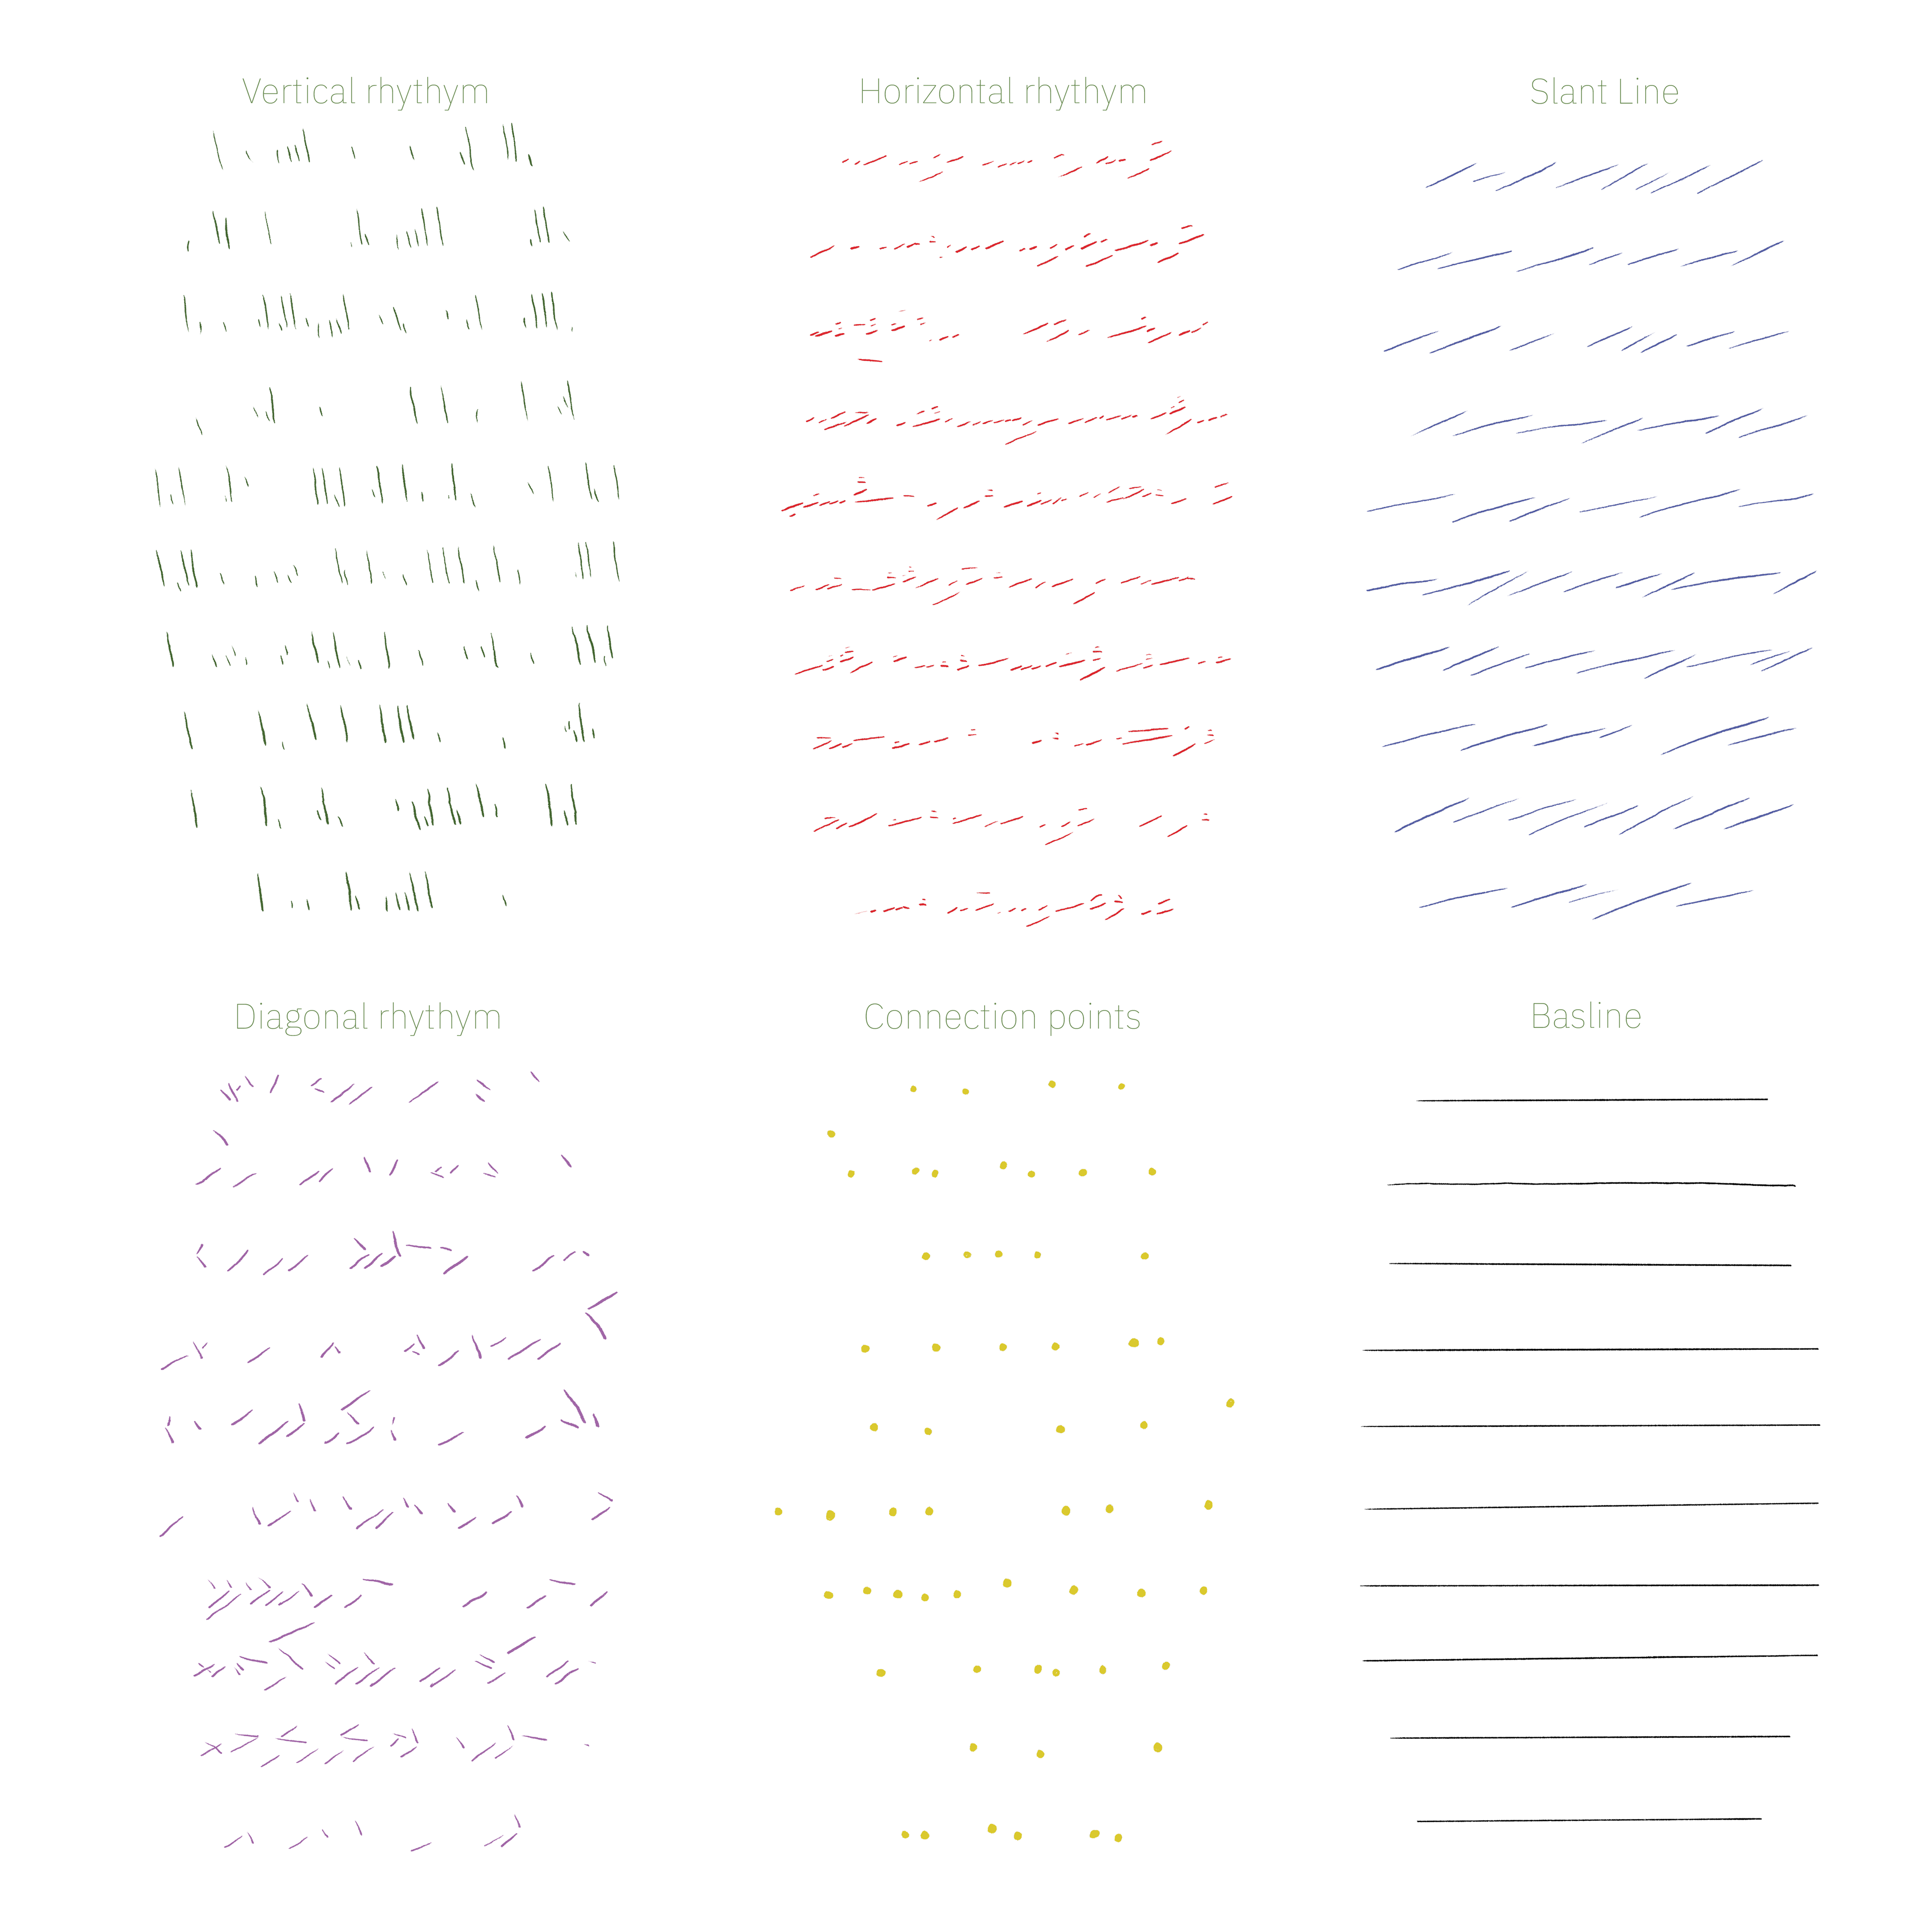 Vertical rhythym
Horizontal rhythym
Slant Line
Diagonal rhythym
Connection points
Basline